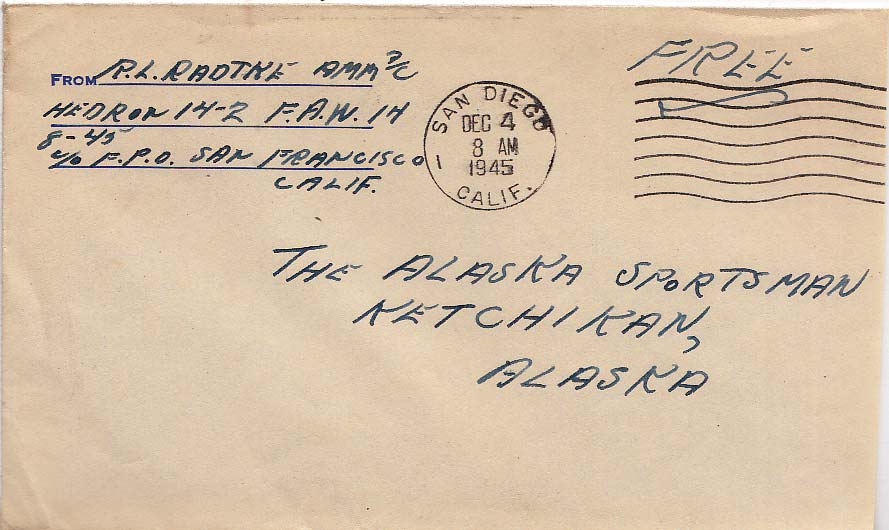 FROM R.L. RADTKE AMM 3/C
HEDRON 14-2 F.A.W. 14
8-45
c/o F.P.O. SAN FRANCISCO
CALIF.
SAN DIEGO
DEC 4
8 AM
1945
1
CALIF.
FREE
THE ALASKA SPORTSMAN
KETCHIKAN,
ALASKA